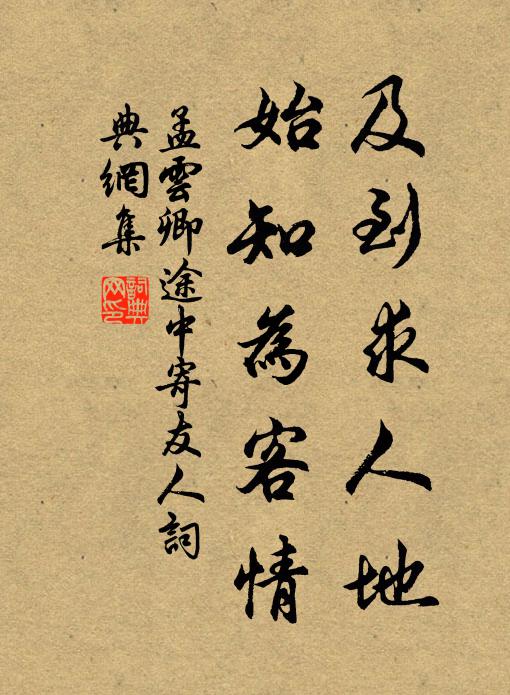 及到求人地
始知為客情
孟雲卿途中寄友人詞
典網集
詞典
网印